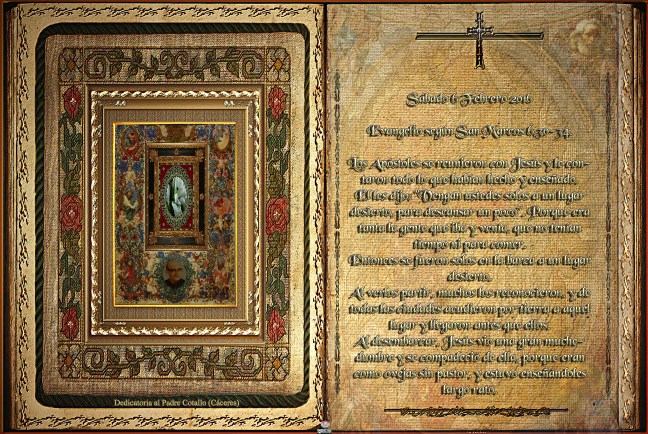 Dedicatoria al Padre Cotallo (Cáceres)
Sábado 6 Febrero 2016
Evangelio según San Marcos 6,30-34.
Los Apóstoles se reunieron con Jesús y le con-
taron todo lo que habían hecho y enseñado.
El les dijo: "Vengan ustedes solos a un lugar
desierto, para descansar un poco". Porque era
tanta la gente que iba y venía, que no tenían
tiempo ni para comer.
Entonces se fueron solos en la barca a un lugar
desierto.
Al verlos partir, muchos los reconocieron, y de
todas las ciudades acudieron por tierra a aquel
lugar y llegaron antes que ellos.
Al desembarcar, Jesús vio una gran muche-
dumbre y se compadeció de ella, porque eran
como ovejas sin pastor, y estuvo enseñándoles
largo rato.